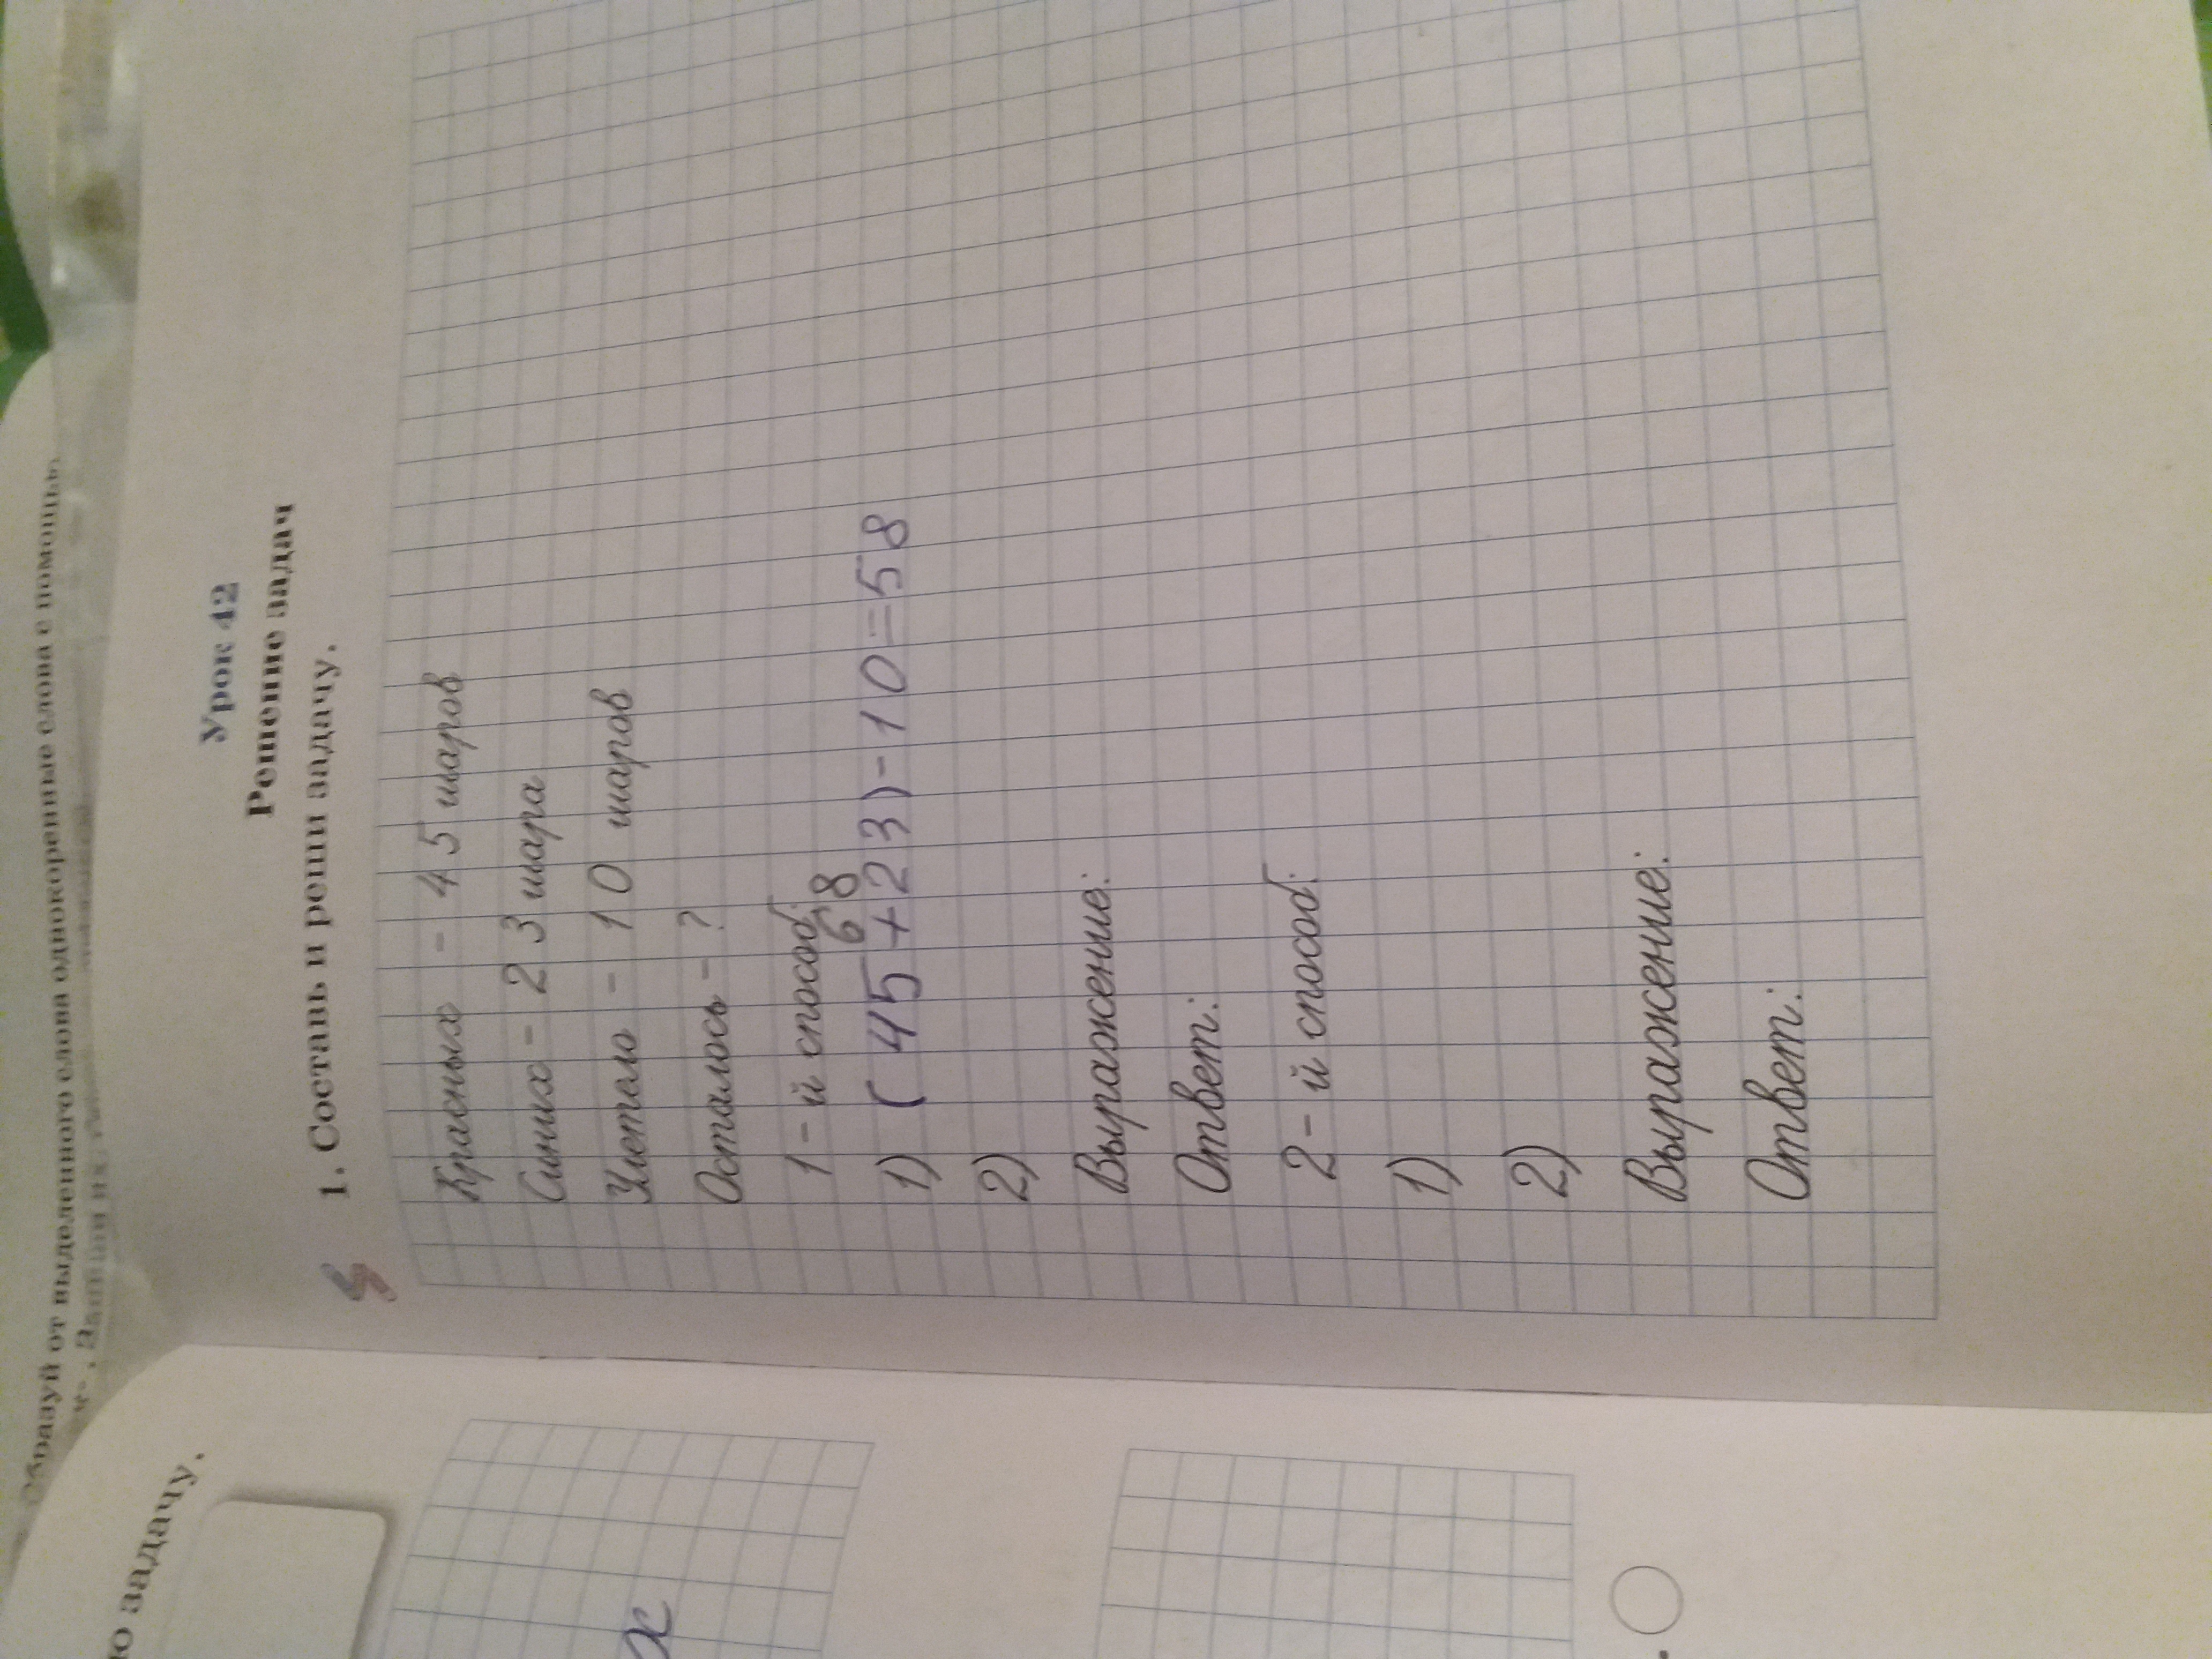 Образуй от выделенного слова однокоренные слова с помощью
Урок 42
Решение задач
1. Составь и реши задачу.
Красных - 45 шаров
Синих - 23 шара
Улетело - 10 шаров
Осталось - ?
1 - й способ:
68
1) (45+23)-10=58
2)
Выражение:
Ответ:
2 - й способ:
1)
2)
Выражение:
Ответ:
задачу.
х